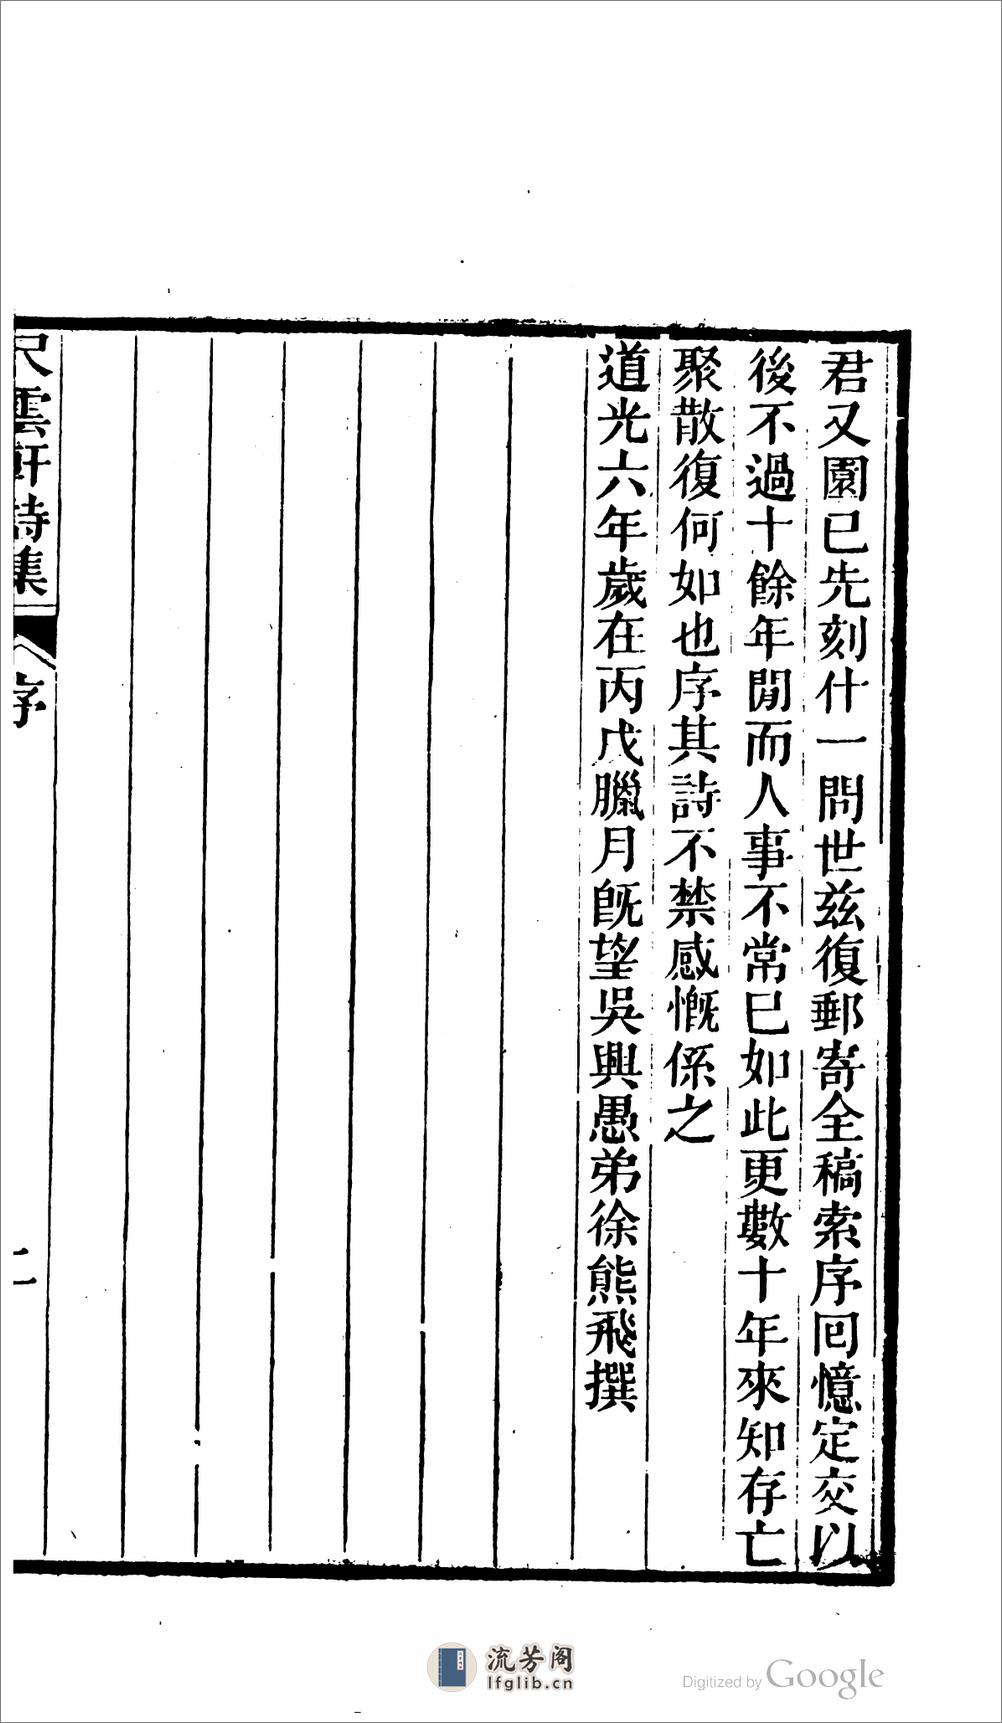 君又園已先刻什一問世茲復郵寄全稿索序回憶定交以
後不過十餘年閒而人事不常已如此更數十年來知存亡
聚散復何如也序其詩不禁感慨係之
道光六年歲在丙戌臘月旣望吳興愚弟徐熊飛撰
尺雲軒詩集
序
二
流芳阁
lfglib.cn
Digitized by Google